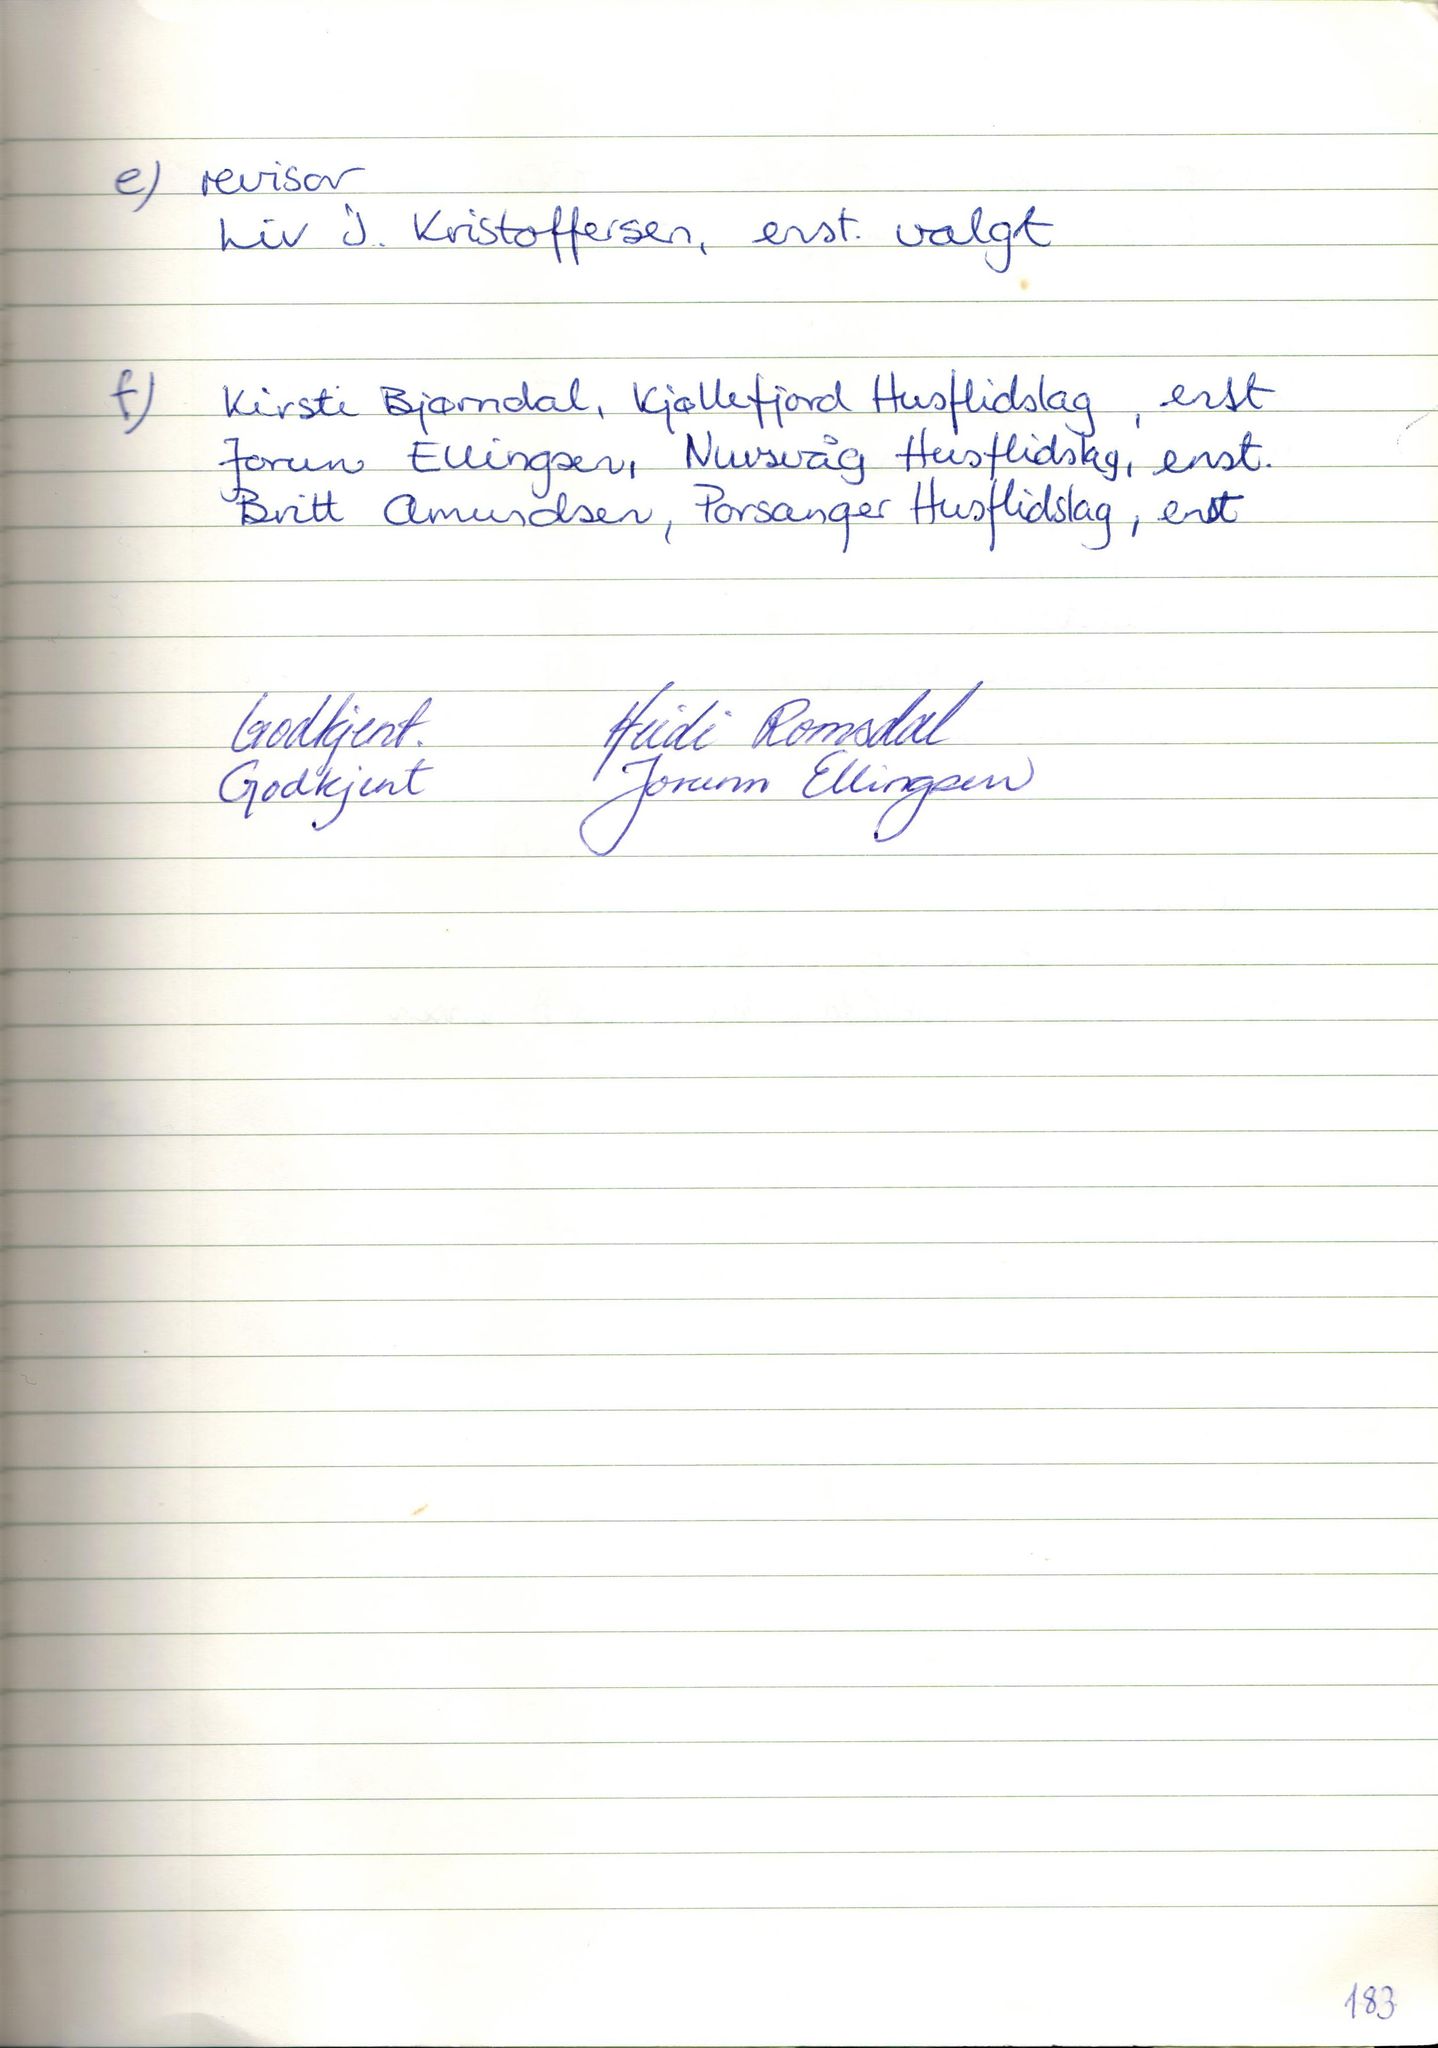 e) revisor
Liv J. Kristoffersen, enst. valgt
f) Kirsti Bjørndal, Kjøllefjord Husflidslag, enst
Jorun Ellingsen, Nuvsvåg Husflidslag, enst.
Britt Amundsen, Porsanger Husflidslag, enst
Godkjent. Heidi Romsdal
Godkjent Jorunn Ellingsen
183